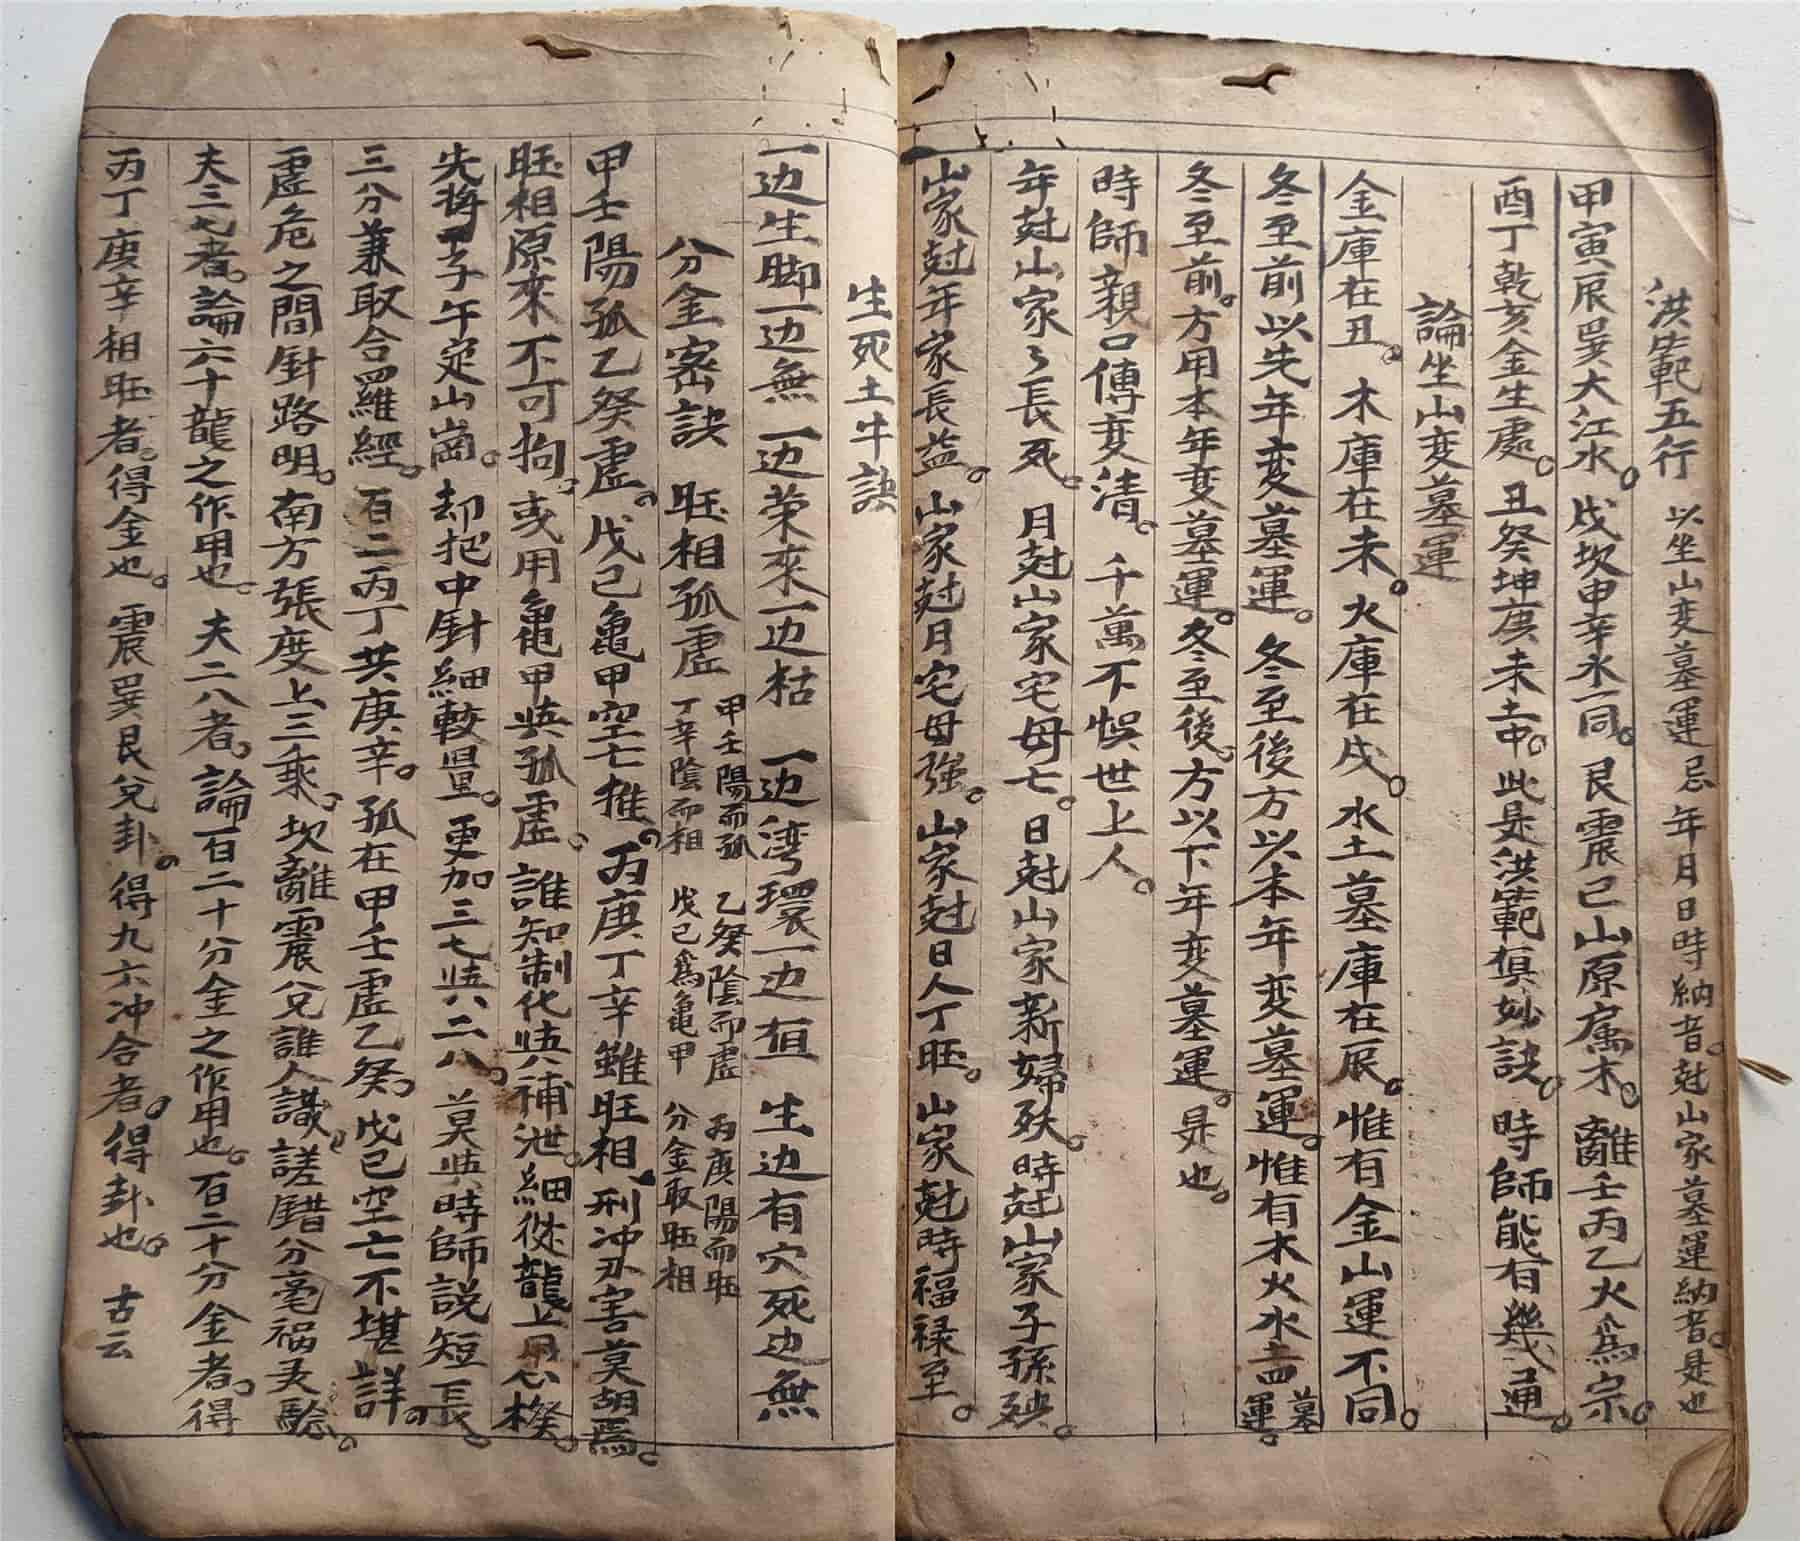 洪範五行 以坐山变墓運忌年月日時納音。尅山家墓運納音。是也
甲寅辰巽大江水。戌坎申辛水一同。艮震巳山原属木。離壬丙乙火為宗。
酉丁乾亥金生處。丑癸坤庚未土中。此是洪範俱妙訣。時師能有幾通。
論坐山变墓運
金庫在丑。木庫在未。火庫在戌。水土墓庫在辰。惟有金山運不同。
冬至前以先年変墓運。冬至後方以本年变墓運。惟有木火水土四墓運。
冬至前。方用本年变墓運。冬至後。方以下年变墓運。是也。
時師親口傳变清。千萬不悞世上人。
年尅山家々長死。月尅山家宅母亡。日尅山家新婦殀。時尅山家子孫殃。
山家尅年家長益。山家尅月宅母強。山家尅日人丁旺。山家尅時福禄至。
生死土牛訣
一边生脚一边無 一边荣來一边枯 一边湾環一边恒 生边有穴死边無
分金宻訣 旺相孤虚 甲壬陽而孤 丁辛陰而相 乙癸陰而虚 戊己為亀甲 丙庚陽而旺 分金取旺相
甲壬陽孤乙癸虚。戊己亀甲空亡推。丙庚丁辛雖旺相。刑冲刃害莫胡爲。
旺相原來不可拘。或用亀甲與孤虚。誰知制化與補泄。細從龍上用心機。
先将子午定山崗。却把中針細較量。更加三七與二八。莫與時師説短長。
三分兼取合羅經。百二丙丁共庚辛。孤在甲壬虚乙癸。戊己空亡不堪詳。
虚危之間針路明。南方張度上三乘。坎離震兑誰人識。差錯分毫禍来驗。
夫三七者。論六十龍之作用也。夫二八者。論百二十分金之作用也。百二十分金者。得
丙丁庚辛相旺者。得金也。震巽艮兑卦。得九六冲合者。得卦也。古云